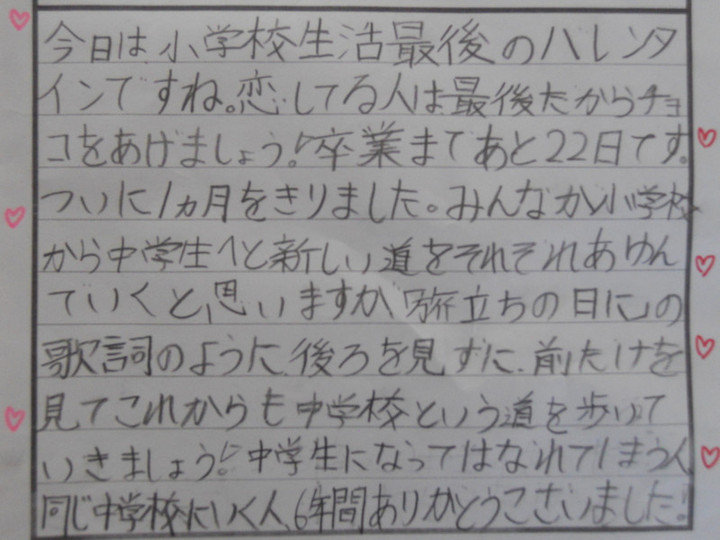 今日は、小学校生活最後のバレンタ
インですね。恋してる人は最後だからチョ
コをあげましょう!卒業まであと22日です。
ついに1ヵ月をきりました。みんなが小学校
から中学生へと新しい道をそれぞれあゆん
でいくと思いますが、「旅立ちの日に」の
歌詞のように、後ろを見ずに、前だけを
見てこれからも中学校という道を歩いて
いきましょう!中学生になってはなれてしまう人、
同じ中学校にいく人、6年間ありがとうございました!